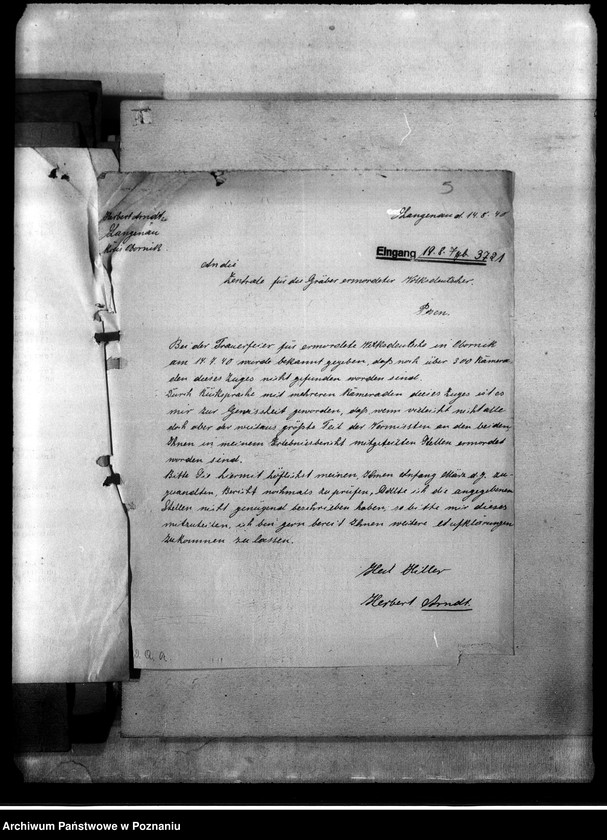 5
Herbert Arndt,
Langenau
Kreis Obornik
Langenau d. 14.8.40
Eingang 19.8. 3721
An die
Zentrale für die Gräber ermordeter Volksdeutscher.
Posen.
Bei der Trauerfeier für ermordete Volksdeutsche in Obornik
am 14.7.40 wurde bekannt gegeben, daß noch über 300 Kamera
den dieses Zuges nicht gefunden worden sind.
Durch Rücksprache mit mehreren Kameraden dieses Zuges ist es
mir zur Gewissheit geworden, daß wenn vieleicht nicht alle
doch aber der weitaus größte Teil der Vermissten an den beiden,
Ihnen in meinem Erlebnisbericht mitgeteilten Stellen ermordet
worden sind.
Bitte Sie hiermit höflichst meinen, Ihnen Anfang März d.J. zu-
gesandten, Bericht nochmals zu prüfen, Sollte ich die angegebenen
Stellen nicht genügend beschrieben haben, so bitte mir dieses
mitzuteilen, ich bin gern bereit Ihnen weitere Aufklärungen
zukommen zu lassen.
Heil Hitler
Herbert Arndt.
Archiwum Państwowe w Poznaniu